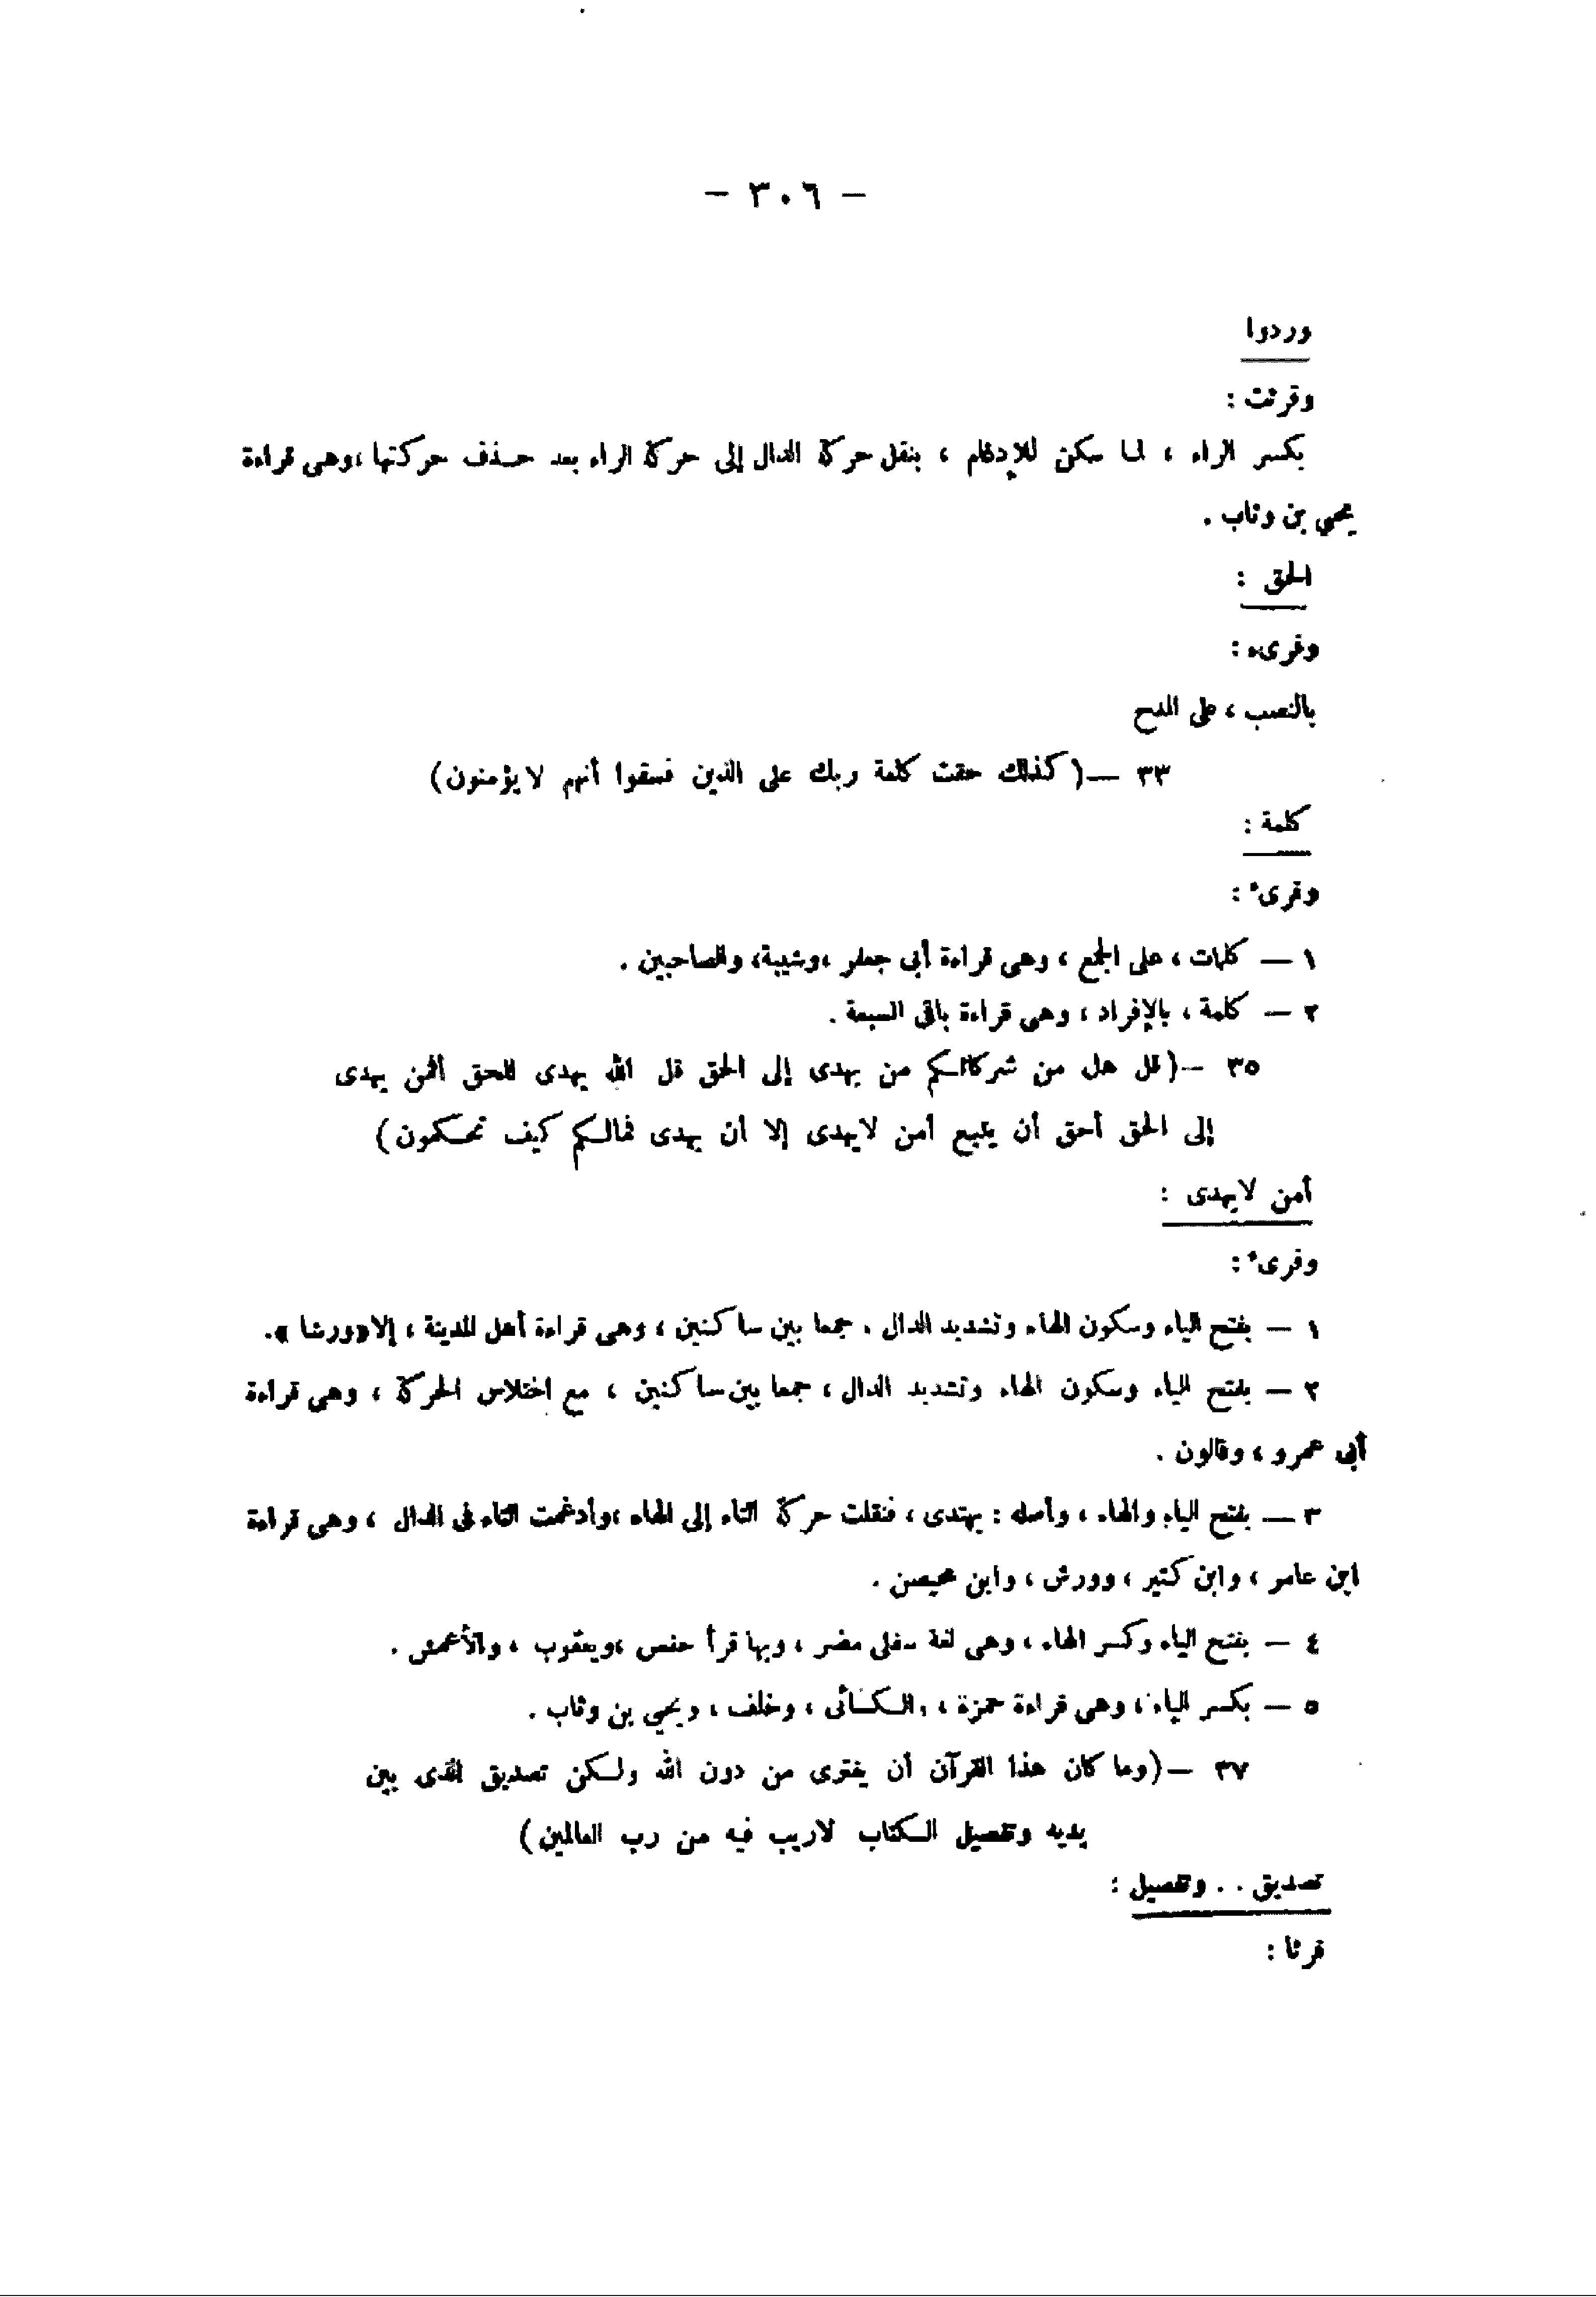 — ٣٠٦ —
وردوا
وقرئت :
بكسر الراء ، لما سكن للإدغام ، بنقل حركة الدال إلى حركة الراء بعد حذف حركتها ،وهى قراءة
يحيى بن وثاب .
الحق :
وقرىء :
بالنصب ، على المدح
٣٣ —( كذلك حقت كلمة ربك على الذين فسقوا أنهم لا يؤمنون)
كلمة :
وقرىء :
١ — كلمات ، على الجمع ، وهى قراءة أبى جعفر ،وشيبة، والصاحبين .
٢ — كلمة ، بالإفراد ، وهى قراءة باقى السبعة .
٣٥ —(قل هل من شركائكم من يهدى إلى الحق قل الله يهدى للحق أفمن يهدى
إلى الحق أحق أن يتبع أمن لايهدى إلا أن يهدى فمالكم كيف تحكمون)
أمن لايهدى :
وقرىء :
١ — بفتح الياء وسكون الهاء وتشديد الدال . جمعا بين ساكنين ، وهى قراءة أهل المدينة ، إلا«ورشا ».
٢ — بفتح الياء وسكون الهاء وتشديد الدال ، جمعا بين ساكنين ، مع اختلاس الحركة ، وهى قراءة
أبى عمرو ، وقالون .
٣ — بفتح الياء والهاء ، وأصله : يهتدى ، فنقلت حركة التاء إلى الهاء ،وأدغمت التاء فى الدال ، وهى قراءة
ابن عامر ، وابن كثير ، وورش ، وابن محيصن .
٤ — بفتح الياء وكسر الهاء ، وهى لغة سفلى مضر ، وبها قرأ حفص ،ويعقوب ، والأعمش .
٥ — بكسر الياء ، وهى قراءة حمزة ، والكسائى ، وخلف ، ويحيى بن وثاب .
٣٧ —(وما كان هذا القرآن أن يفترى من دون الله ولكن تصديق الذى بين
يديه وتفصيل الكتاب لاريب فيه من رب العالمين)
تصديق . . وتفصيل :
قرئا :